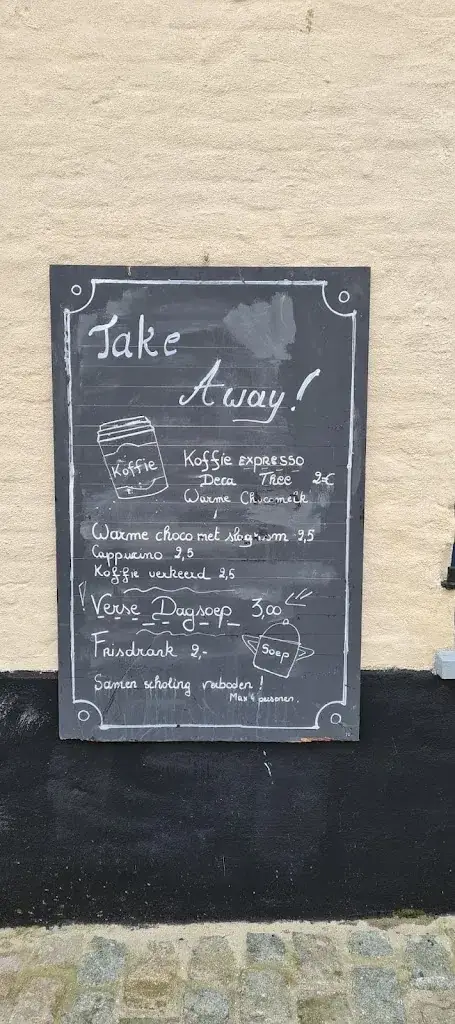 Take
Away!
Koffie
Koffie EXPRESSO
Deca Thee 2€
Warme Chocomelk
Warme choco met slagroom 2,5
Cappucino 2,5
Koffie verkeerd 2,5
! Verse Dagsoep 3,00
Frisdrank 2,-
Soep
Samen scholing verboden!
Max 4 personen.